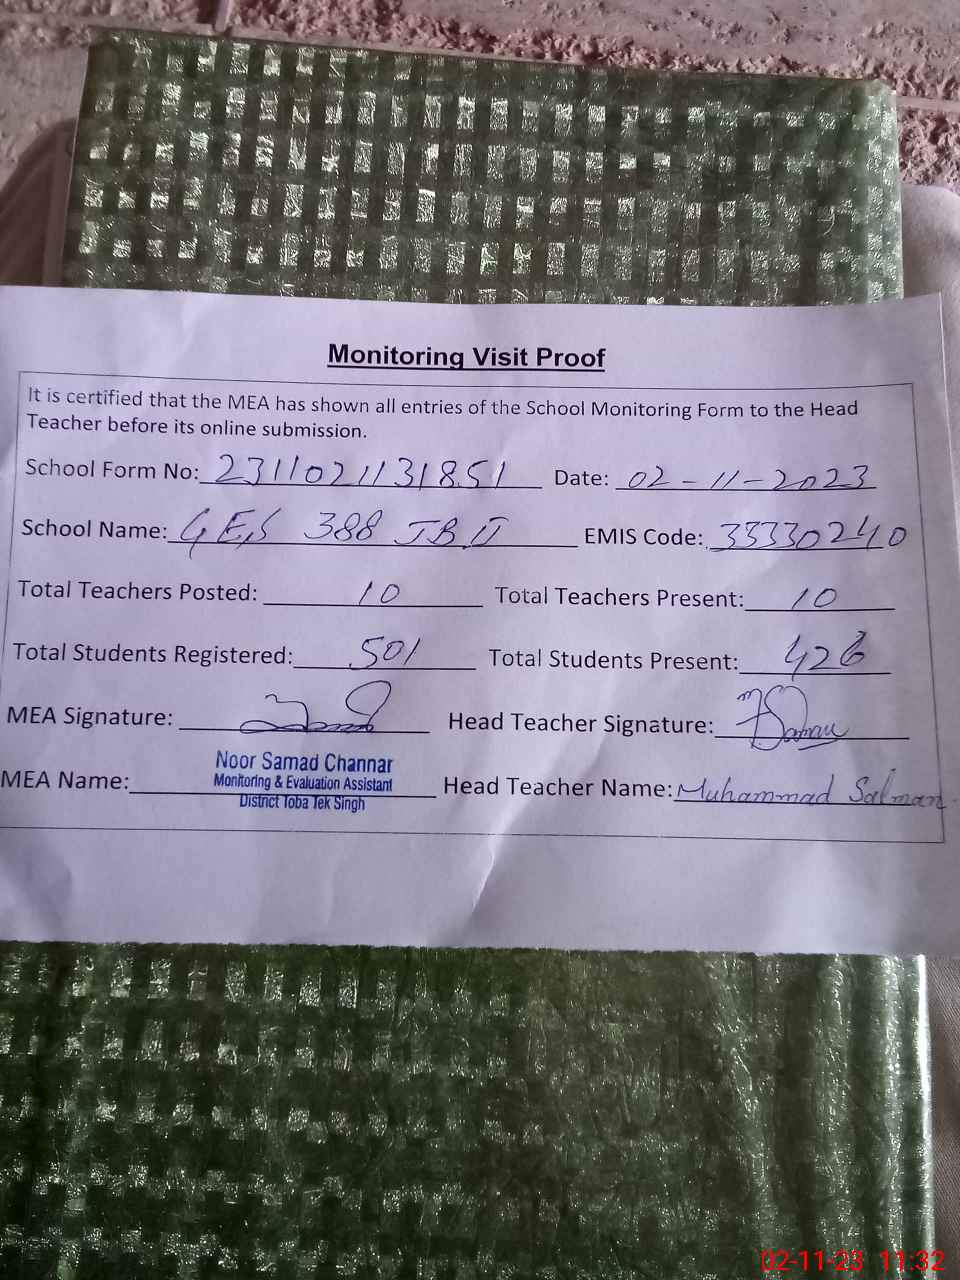 Monitoring Visit Proof
It is certified that the MEA has shown all entries of the School Monitoring Form to the Head
Teacher before its online submission.
School Form No: 2311021131851 Date: 02-11-2023
School Name: GES 388 JB II EMIS Code: 33330240
Total Teachers Posted: 10 Total Teachers Present: 10
Total Students Registered: 501 Total Students Present: 426
MEA Signature: Head Teacher Signature: MSalman
MEA Name: Noor Samad Channar Head Teacher Name: Muhammad Salman
Monitoring & Evaluation Assistant
District Toba Tek Singh
02-11-23 11:32